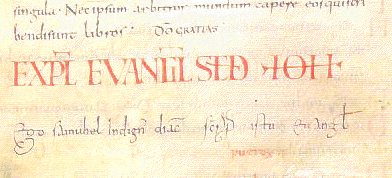 singula. Nec ipsum arbitror mundum capere eos qui scri
bendi sunt libros. D͞O GRATIAS
EXPL͞ EVANG͞L SED IOH
Ego samuhel indign diac scrip istu euangl